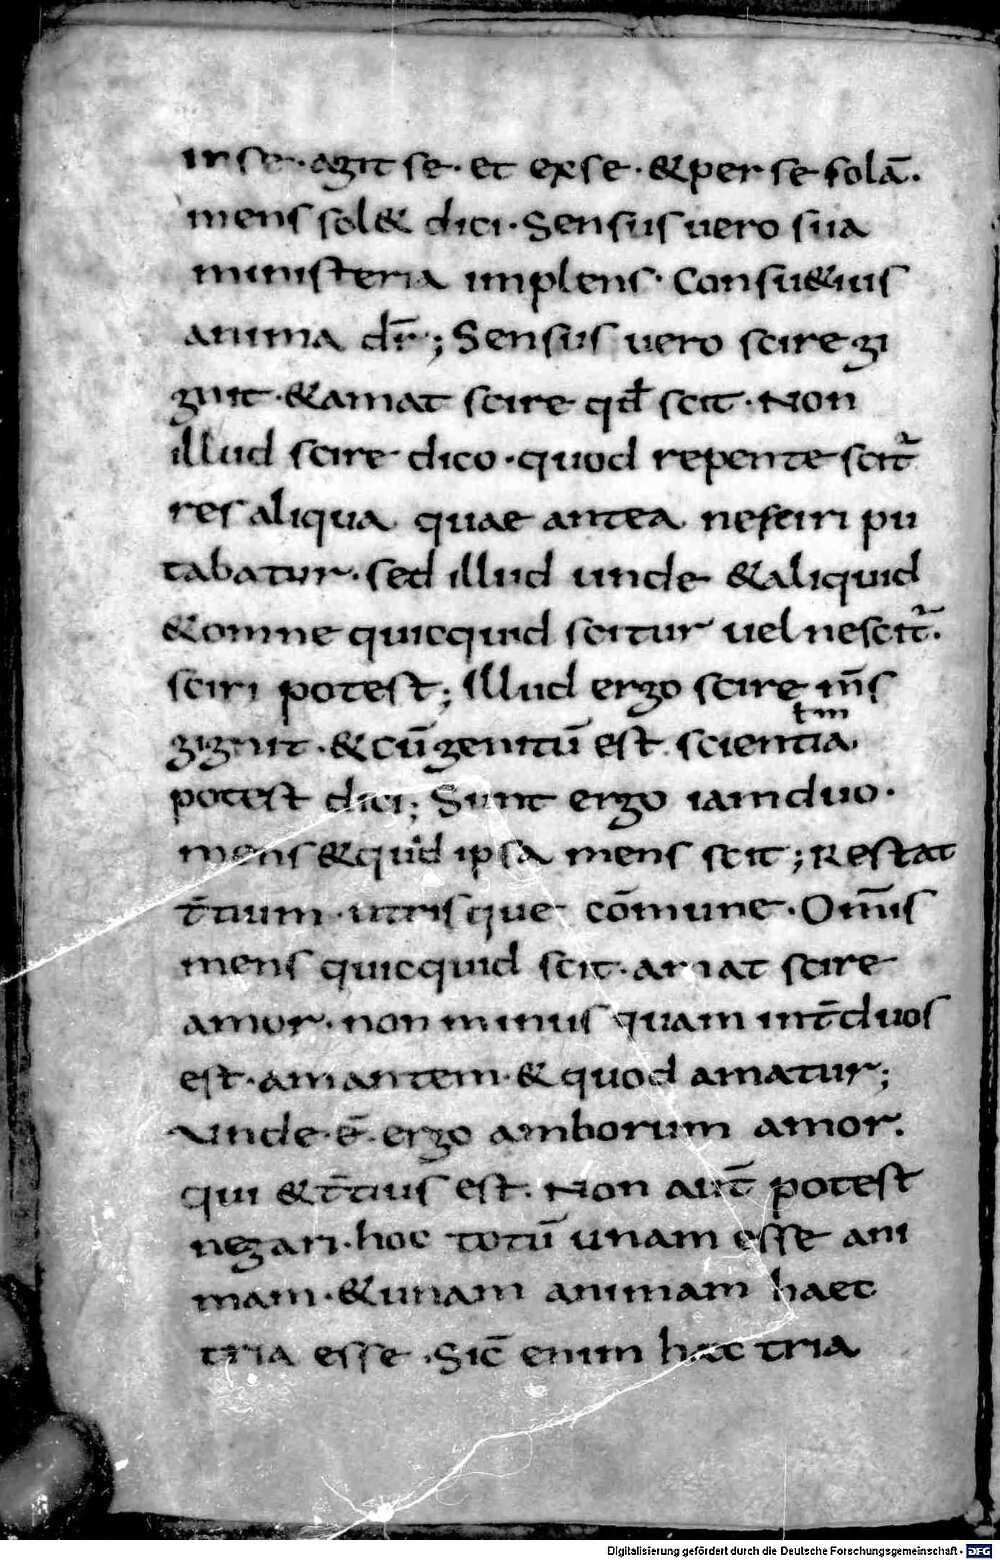 in se · agit se · et ex se · & per se solā.
mens sol& dici · Sensus uero sua
ministeria implens · Consu&uis
anima dr̄; Sensus uero scire gi
gnit · & amat scire qđ scit · Non
illud scire dico · quod repente scit̄
res aliqua quae antea nesciri pu
tabatur · sed illud unde & aliquid
& omne quicquid scitur uel nescit̄.
sciri potest; Illud ergo scire m̄s
gignit · & cū genitū est scientia tm
potest dici; Sunt ergo iam duo ·
mens & quid ipsa mens scit; Restat
t̄tium utrisque cōmune · Om̄is
mens quicquid scit · amat scire
amor · non minus quam int̄ duos
est · amantem · & quod amatur;
Unde · ē · ergo amborum amor.
qui & t̄tius est. Non aut̄ potest
negari · hoc totū unam esse ani
mam · & unam animam haec
tria esse · Sic̄ enim haec tria
Digitalisierung gefördert durch die Deutsche Forschungsgemeinschaft - DFG